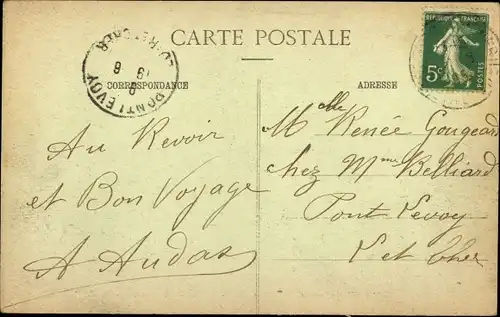 CARTE POSTALE
CORRESPONDANCE
ADRESSE
RÉPUBLIQUE FRANÇAISE
5c
POSTES
PONTLEVOY
Au Revoir
et Bon Voyage
A Audas
Melle Renée Gougeard
chez Mme Belliard
Pont Levoy
L et Cher